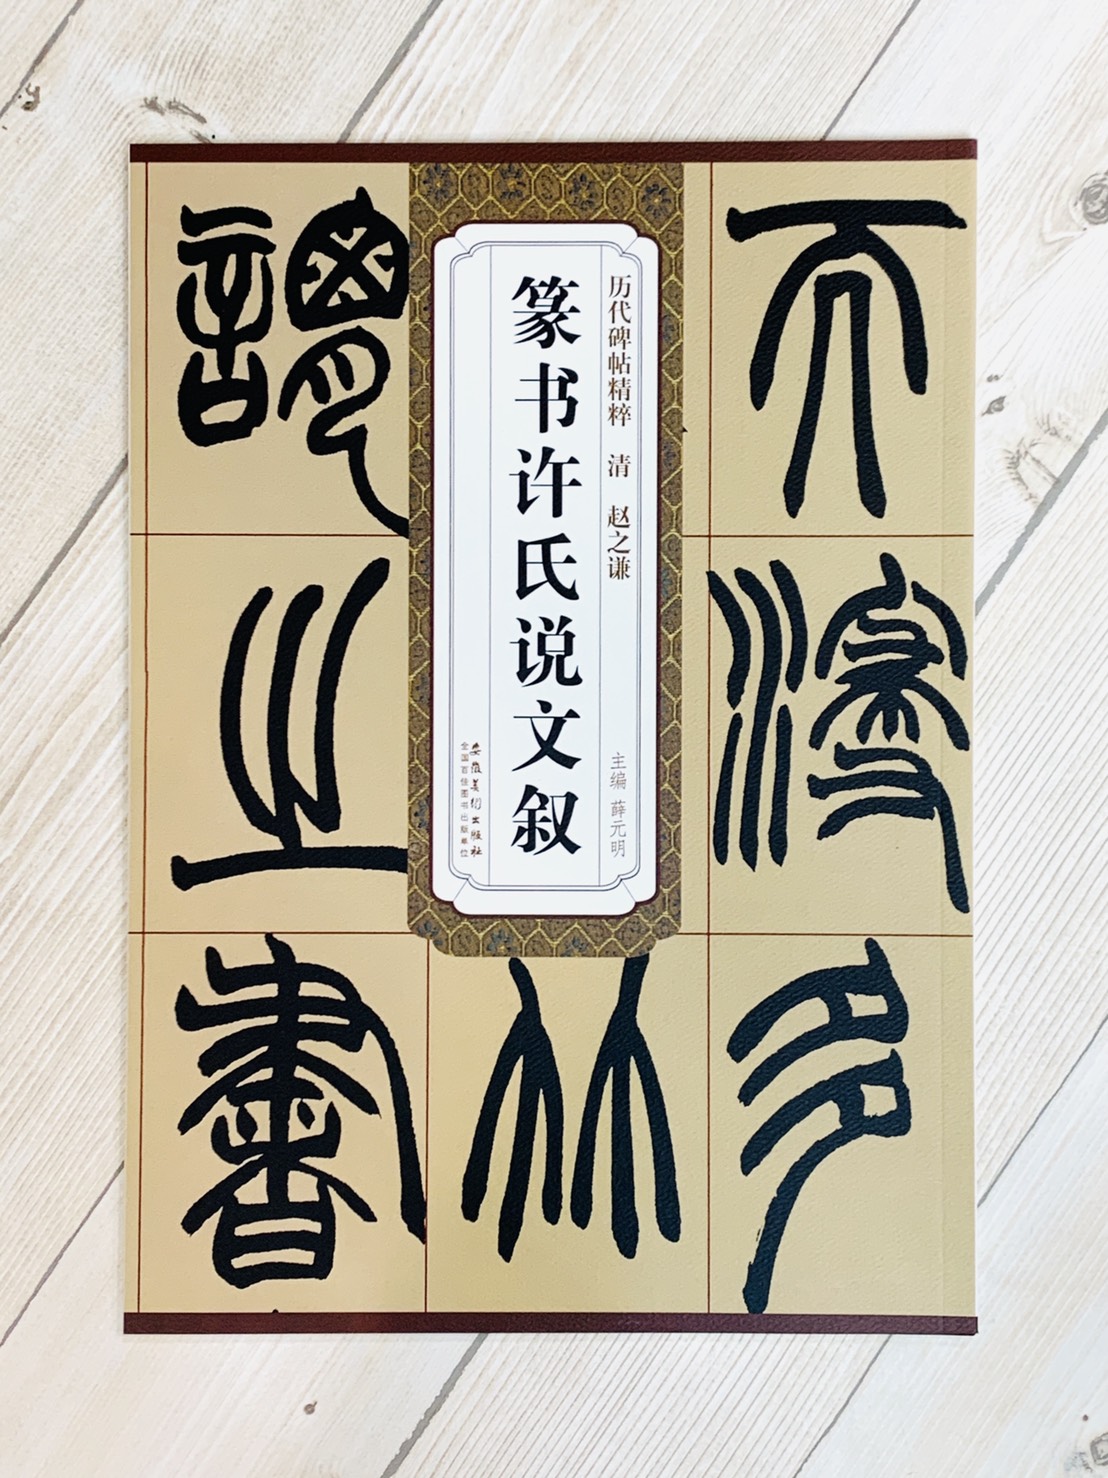 而
浸
多
竹
謂
之
書
历代碑帖精粹 清 赵之谦
主编 薛元明
篆书许氏说文叙
安徽美术出版社
全国百佳图书出版单位